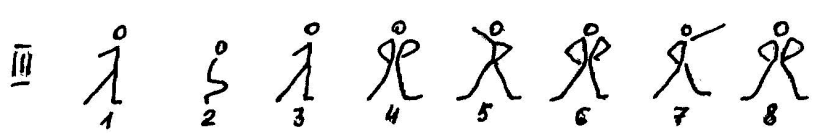 III
1 2 3 4 5 6 7 8